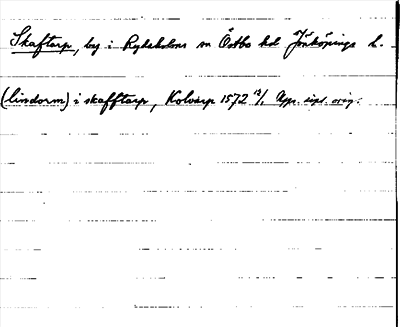 Skaftarp, by i Rydaholms sn Östbo hd Jönköpings l.
(lindorm) i skafftarp, Kolvarp 1572 13/1 Upps. sips. orig.